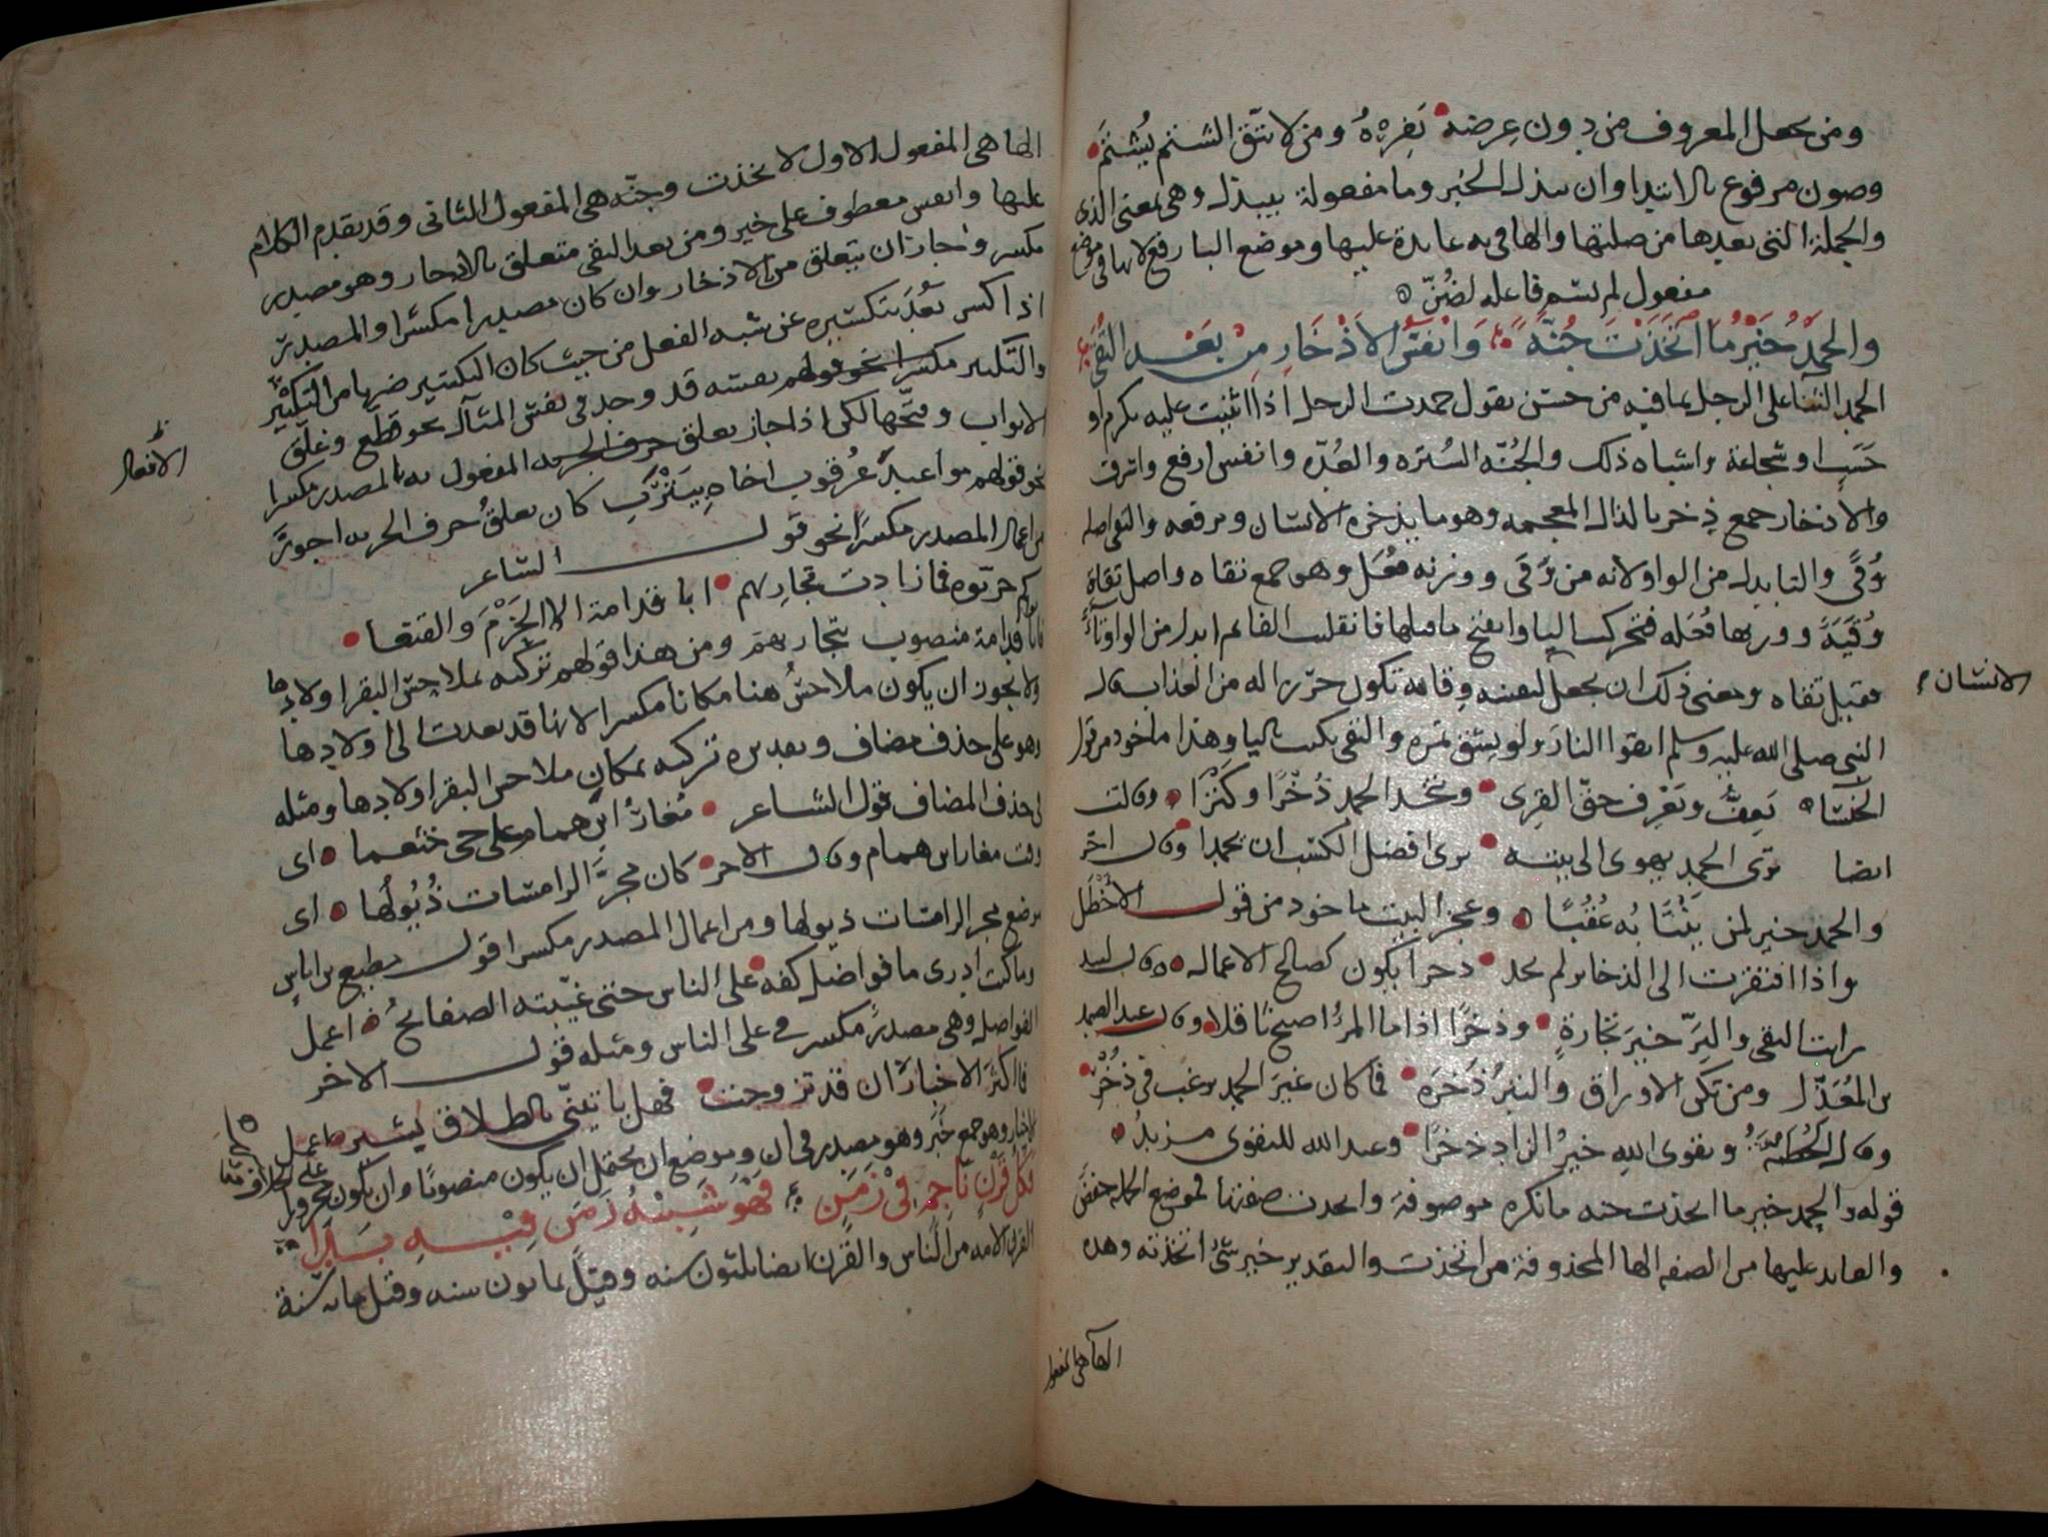 ومن يجعل المعروف من دون عرضه يَفِرْهُ ومن لا يتق الشتم يُشْتَمِ
وصون مرفوع بالابتدا وان يبذل الخبر وما مفعولة بيبذل وهى بمعنى الذى
والجملة التى بعدها من صلتها والها فى به عايدة عليها وموضع البا رفع لانها فى موضع
مفعول لم يسم فاعله لضُنّ
والحمدُ خَيْرُ مَا اتَّخَذْتَ جُنَّةً وَانْفَسُ الاَذْخَارِ مِنْ بَعْدِ التُّقَى
الحمد الثنا على الرجل بما فيه من حسن تقول حمدت الرجل اذا اثنيت عليه بكرم او
حسب او شجاعة واشباه ذلك والجُنّه السُتره والعُدّه وانفس ارفع واشرف
والاذخار جمع ذخر بالذال المعجمه وهو ما يذخره الانسان ويرفعه والتقى اصله
وُقًى والتا بدل من الواو لانه من وَقَى ووزنه فُعَل وهو جمع تقاه واصل تقاة
وُقَيَةً ووزنها فُعَله فتحركت اليا وانفتح ما قبلها فانقلبت الفا ثم ابدل من الواو تاءً
فقيل تقاه ومعنى ذلك ان يجعل لنفسه وقايه تكون حرزا له من العذاب قال
الانسان
النبى صلى الله عليه وسلم اتقوا النار ولو بشق تمره والتقى يكتب باليا وهذا ماخوذ من قول
الخنسا يَعِفُّ ويَعْرِف حقّ القِرى ويتخذ الحمد ذُخْرًا وكَنْزًا وقالت
ايضا ترى الحمد يهوى الى بيته يرى افضل الكسب ان يحمدا وقال اخر
والحمد خير لمن عُقُبًا وعجز البيت ماخوذ من قول الاخْطَل
واذا افتقرت الى الذخاير لم تجد ذخرا يكون كصالح الاعمال وقال لبيد
رايت التقى والبرّ خيرَ تجارةٍ وذخرًا اذا ما المرءُ اصبح ثاقلا وقال عبد الصمد
بن المُعَذّل ومن تكن الاوراق والتبرُ ذُخرَه فما كان غيرَ الحمد يرغب فى ذُخْر
وقال الحُطيئَة وتقوى اللهِ خيرُ الزاد ذخرًا وعند الله للتقوى مزيدُ
قوله والحمد خير ما اتخذت جنه ما نكره موصوفة واتخذت صفتها فموضع الجمله خفض
والعايد عليها من الصفه الها المحذوفة من اتخذت والتقدير خير شىءٍ اتخذته وهذه
الها هى المفعول
الها هى المفعول الاول لاتخذت وجنّه هى المفعول الثانى وقد تقدم الكلام
عليها وانفس معطوف على خير ومن بعد التقى متعلق بالاذخار وهو مصدر
مكسر واجاز ان يتعلق من الاذخار وان كان مصدرا مكسرا والمصدر
اذا كسر بَعُدَ بتكسيره عن شبه الفعل من حيث كان التكسير ضربا من التكثير
والتكثير قد وجد فى نفس المثال نحو قطّع وغلّق
الافعال
الابواب وفتّحها لكن اذا جاز تعلق المفعول به بالمصدر مكسرا
نحو قولهم مواعيدَ عُرقوب اخاه بِيَتْرَبِ كان تعلّقُ حرف الجر به اجوز
من اعمال المصدر مكسرًا نحو قول الشاعر
كم جرّبوه فما زادت تجارِبهم ابا قدامة الا الحَزْمَ والفنعا
فابا قدامة منصوب بتجاربهم ومن هذا قولهم تركته بملاحِس البقر اولادها
ولا يجوز ان يكون ملاحسُ هنا مكانا مكسرا لانها قد تعدت الى اولادها
وهو على حذف مضاف وتقديره تركته بمكان ملاحس البقر اولادها ومثله
فى حذف المضاف قول الشاعر مُغارُ ابنِ همام على حى خثعما اى
وقت مغار ابن همام وقال الاخر كان مَجَرَّ الرامسات ذُيُولُها اى
موضع مجر الرامسات ذيولها ومن اعمال المصدر مكسرا قول مطيع بن اياسٍ
وما كنت ادرى ما فواضل كفه على الناس حتى غيّبته الصفائحُ اعمل
الفواضل وهى مصدرٌ مكسر فى على الناس ومثله قول الاخر
فما اكثرَ الاخبارَ ان قد تزوجت فهل ياتينّى بالطلاق بشير فاعمل
الاخبار وهو جمع خَبَر وهو مصدر فى ان وموضع ان يحتمل ان يكون منصوبًا وان يكون مجرورا
على الخلاف
فكُلُّ قَرْنٍ نَاجِمٍ فِىْ زَمَنٍ فَهْوَ شَبِيْهُ زَمَنٍ فِيْهِ بَدَا
القرن الامه من الناس والقَرْن ايضا ثلثون سنه وقيل ثمانون سنه وقيل مائة سنة